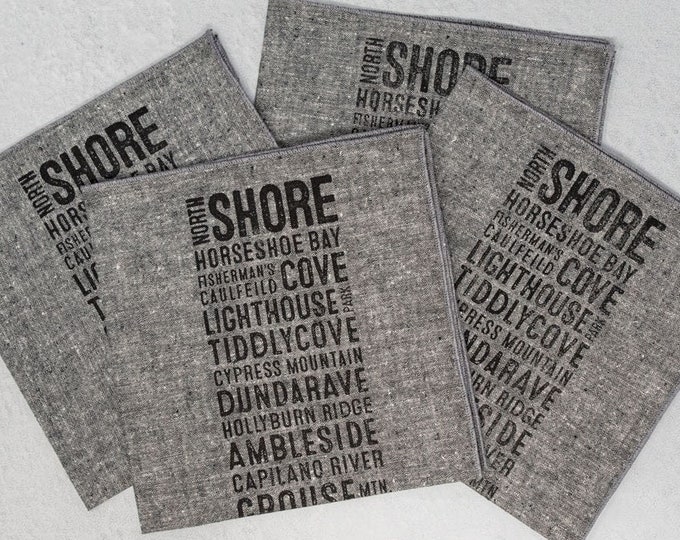 NORTH SHORE
HORSESHOE BAY
FISHERMAN'S COVE
CAULFEILD
LIGHTHOUSE PARK
TIDDLYCOVE
CYPRESS MOUNTAIN
DUNDARAVE
HOLLYBURN RIDGE
AMBLESIDE
CAPILANO RIVER
GROUSE MTN.
NORTH SHORE
HORSESHOE BAY
FISHERMAN'S
CAULFEILD
NORTH SHORE
HORSESHOE
FISHERMAN'S
NORTH SHORE
HORSESHOE BAY
FISHERMAN'S COVE
CAULFEILD
LIGHTHOUSE PARK
TIDDLYCOVE
CYPRESS MOUNTAIN
NDARAVE
URN RIDGE
SIDE
RIVER
MTN.